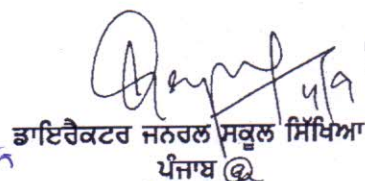 4/9
ਡਾਇਰੈਕਟਰ ਜਨਰਲ ਸਕੂਲ ਸਿੱਖਿਆ
ਪੰਜਾਬ